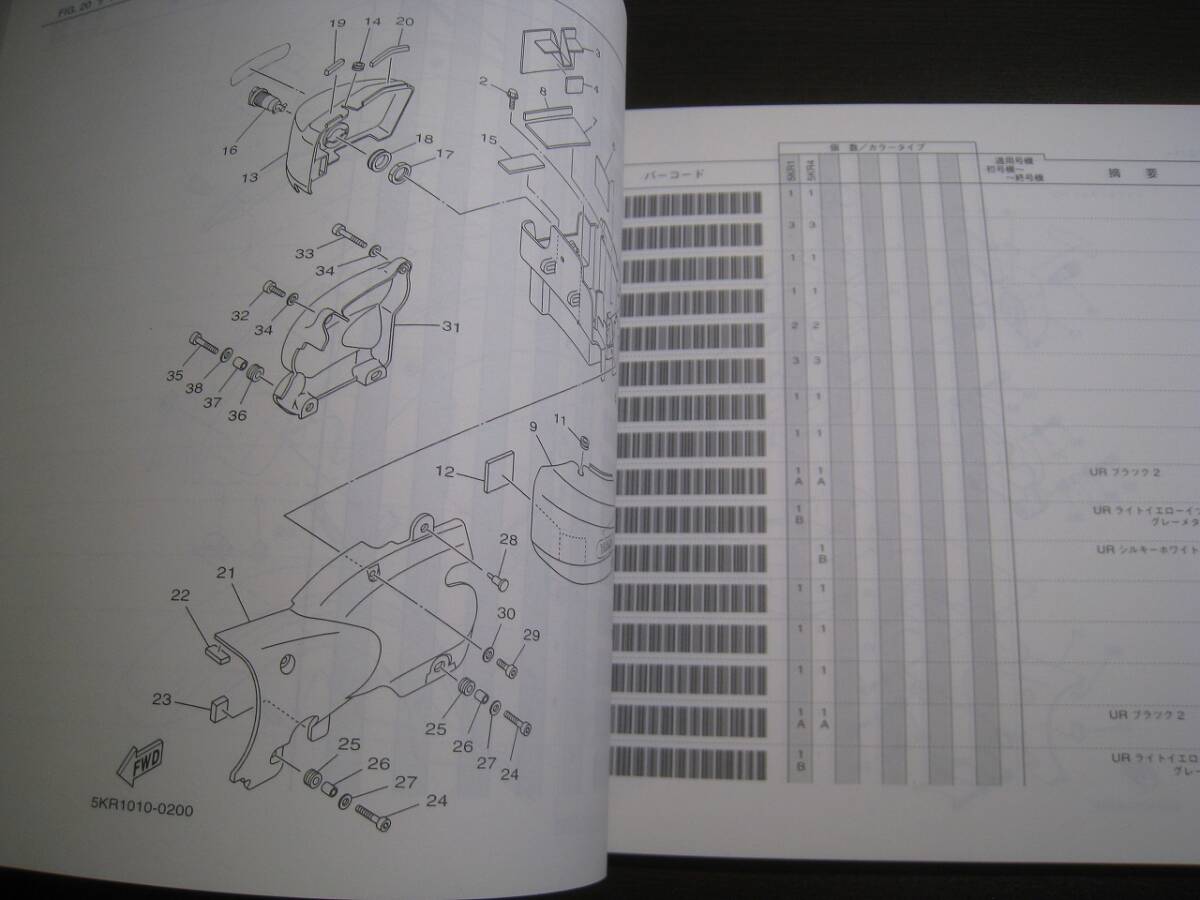 FIG. 20
19
14
20
3
2
4
8
16
15
18
17
13
33
34
32
34
31
35
38
37
36
9
11
12
28
21
22
30
29
23
25
26
27
24
25
26
27
24
FWD
5KR1010-0200
個 数/カラータイプ
バーコード
5KR1
5KR4
適用号機
初号機~
~終号機
摘 要
1 1
3 3
1 1
1 1
2 2
3 3
1 1
1 1
1 1 UR ブラック2
A A
1 UR ライトイエロー
B グレーメタ
1 UR シルキーホワイト
B
1 1
1 1
1 1
1 1 UR ブラック2
A A
1 UR ライトイエロ
B グレー